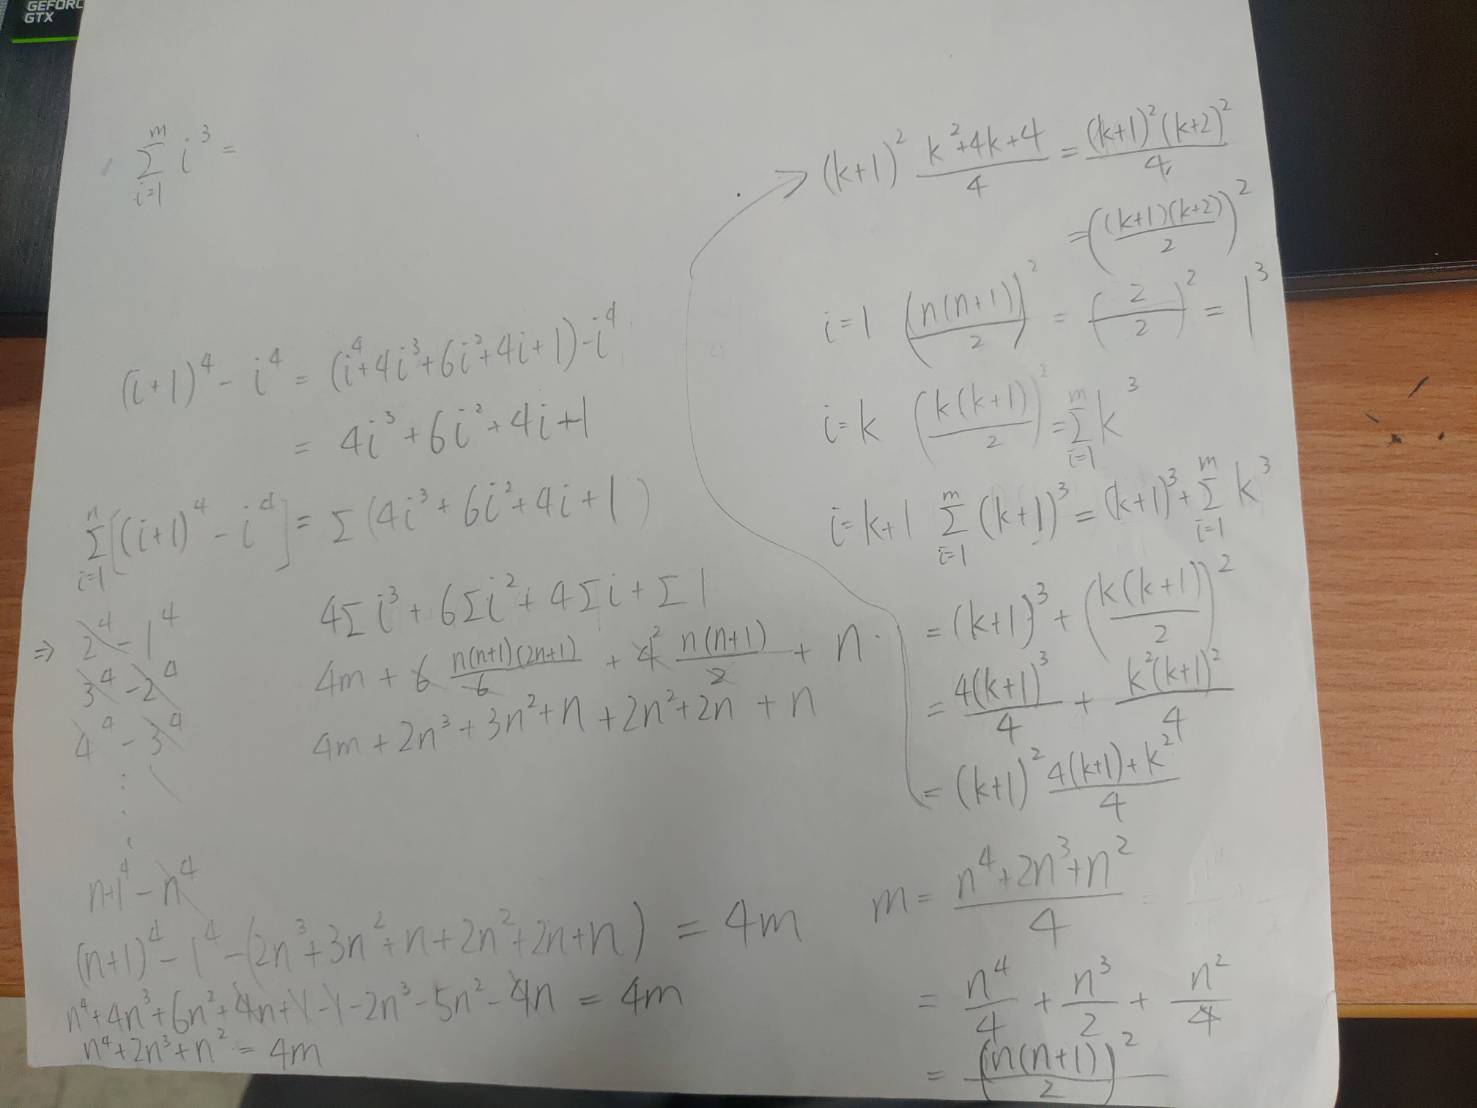 GEFORC
GTX
\sum_{i=1}^{m} i^3 =
(i+1)^4 - i^4 = (i^4+4i^3+6i^2+4i+1)-i^4
= 4i^3+6i^2+4i+1
\sum_{i=1}^{n} [(i+1)^4 - i^4] = Σ(4i^3+6i^2+4i+1)
4Σi^3 + 6Σi^2 + 4Σi + Σ1
⇒ 2^4 - 1^4
3^4 - 2^4
4^4 - 3^4
⋮
n+1^4 - n^4
4m + 6 \frac{n(n+1)(2n+1)}{6} + 4^2 \frac{n(n+1)}{2} + n
4m + 2n^3 + 3n^2 + n + 2n^2 + 2n + n
(n+1)^4 - 1^4 - (2n^3+3n^2+n+2n^2+2n+n) = 4m
n^4+4n^3+6n^2+4n+1-1-2n^3-5n^2-4n = 4m
n^4+2n^3+n^2 = 4m
→ (k+1)^2 \frac{k^2+4k+4}{4} = \frac{(k+1)^2(k+2)^2}{4}
= (\frac{(k+1)(k+2)}{2})^2
i=1 (\frac{n(n+1)}{2})^2 = (\frac{2}{2})^2 = 1^3
i=k (\frac{k(k+1)}{2})^2 = \sum_{i=1}^{m} k^3
i=k+1 \sum_{i=1}^{m} (k+1)^3 = (k+1)^3 + \sum_{i=1}^{m} k^3
= (k+1)^3 + (\frac{k(k+1)}{2})^2
= \frac{4(k+1)^3}{4} + \frac{k^2(k+1)^2}{4}
= (k+1)^2 \frac{4(k+1)+k^2}{4}
m = \frac{n^4+2n^3+n^2}{4}
= \frac{n^4}{4} + \frac{n^3}{2} + \frac{n^2}{4}
= (\frac{n(n+1)}{2})^2